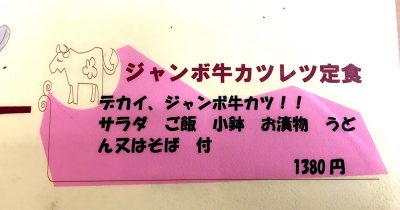 ジャンボ牛カツレツ定食
デカイ、ジャンボ牛カツ！！
サラダ　ご飯　小鉢　お漬物　うど
ん又はそば　付
1380円